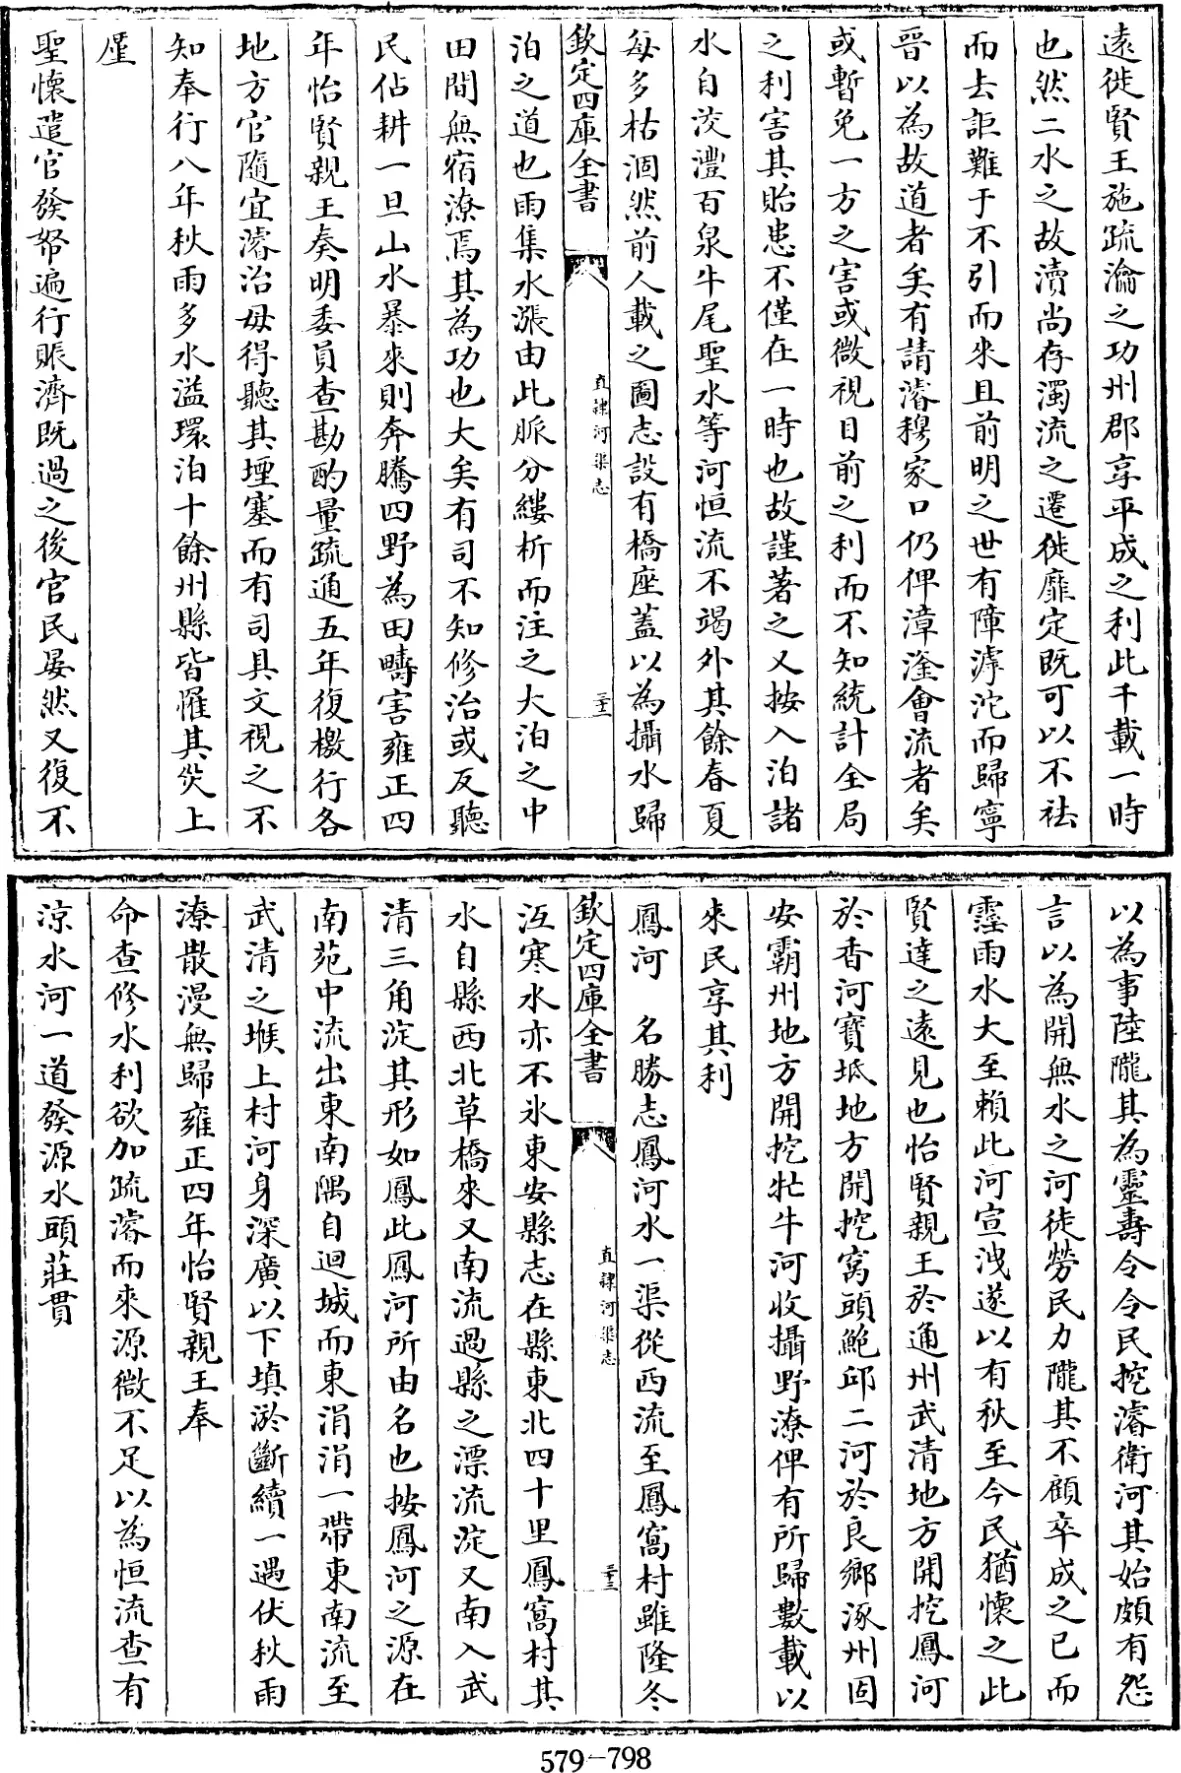 遠徙賢王施疏瀹之功州郡享平成之利此千載一時
也然二水之故瀆尚存濁流之遷徙靡定既可以不袪
而去詎難于不引而來且前明之世有障滹沱而歸寧
晉以為故道者矣有請濬穆家口仍俾漳滏會流者矣
或暫免一方之害或微視目前之利而不知統計全局
之利害其貽患不僅在一時也故謹著之又按入泊諸
水自洨澧百泉牛尾聖水等河恒流不竭外其餘春夏
每多枯涸然前人載之圖志設有橋座蓋以為攝水歸
欽定四庫全書
直隸河渠志
三十二
泊之道也雨集水漲由此脈分縷析而注之大泊之中
田間無宿潦焉其為功也大矣有司不知修治或反聽
民佔耕一旦山水暴來則奔騰四野為田疇害雍正四
年怡賢親王奏明委員查勘酌量疏通五年復檄行各
地方官隨宜濬治毋得聽其堙塞而有司具文視之不
知奉行八年秋雨多水溢環泊十餘州縣皆罹其災上
廑
聖懷遣官發帑遍行賑濟既過之後官民晏然又復不
以為事陸隴其為靈壽令令民挖濬衛河其始頗有怨
言以為開無水之河徒勞民力隴其不顧卒成之已而
霪雨水大至賴此河宣洩遂以有秋至今民猶懷之此
賢達之遠見也怡賢親王於通州武清地方開挖鳳河
於香河寶坻地方開挖窩頭鮑邱二河於良鄉涿州固
安霸州地方開挖牤牛河收攝野潦俾有所歸數載以
來民享其利
鳳河　名勝志鳳河水一渠從西流至鳳窩村雖隆冬
欽定四庫全書
直隸河渠志
三十三
沍寒水亦不氷東安縣志在縣東北四十里鳳窩村其
水自縣西北草橋來又南流過縣之漂流淀又南入武
清三角淀其形如鳳此鳳河所由名也按鳳河之源在
南苑中流出東南隅自迴城而東涓涓一帶東南流至
武清之堠上村河身深廣以下填淤斷續一遇伏秋雨
潦散漫無歸雍正四年怡賢親王奉
命查修水利欲加疏濬而來源微不足以為恒流查有
涼水河一道發源水頭莊貫
579-798